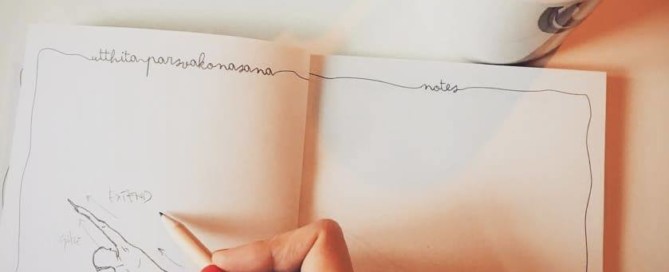 utthita parsvakonasana
notes
EXTEND